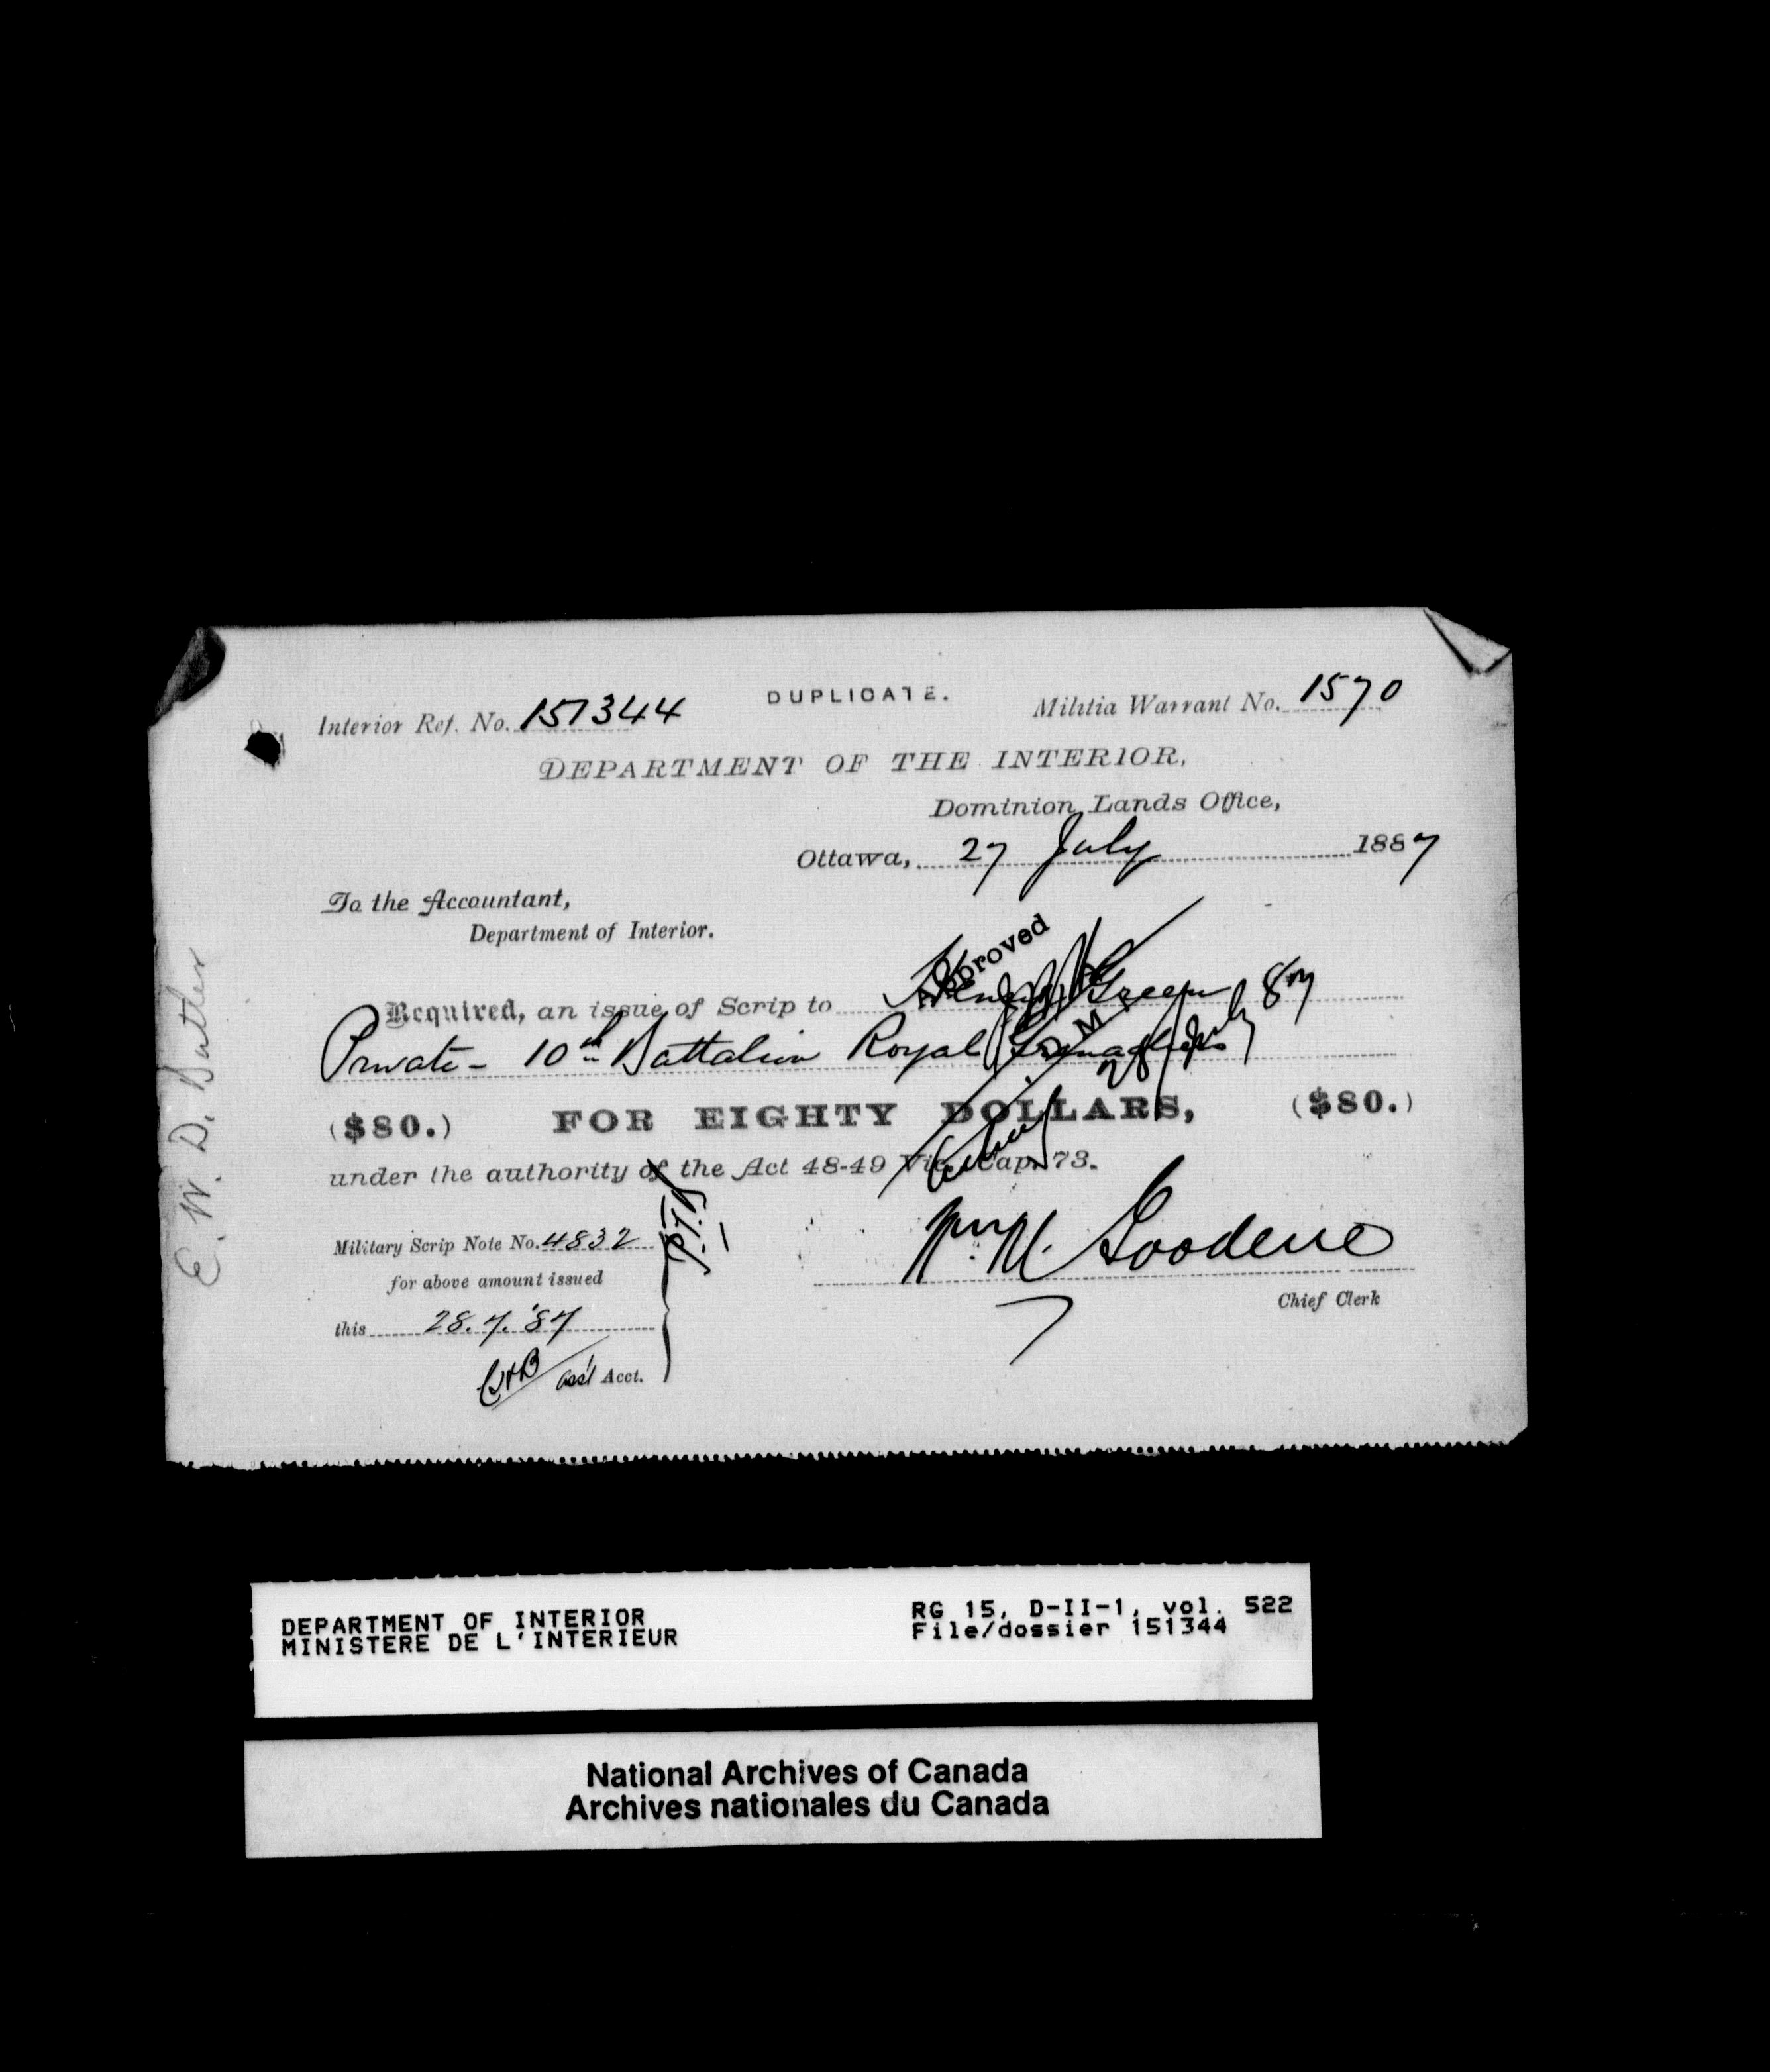 DUPLICATE.
Interior Ref. No. 151344
Militia Warrant No. 1570
DEPARTMENT OF THE INTERIOR,
Dominion Lands Office,
Ottawa, 27 July 1887
To the Accountant,
Department of Interior.
Approved
Required, an issue of Scrip to Henry Green
Private - 10th Battalion Royal Grenadiers
28 July 87
($80.) FOR EIGHTY DOLLARS, ($80.)
under the authority of the Act 48-49 Vic. Cap. 73.
Military Scrip Note No. 4832
for above amount issued
this 28.7.'87
Acct.
Wm M. Goodeve
Chief Clerk
E. W. D. Butler
DEPARTMENT OF INTERIOR
MINISTERE DE L'INTERIEUR
RG 15, D-II-1, vol. 522
File/dossier 151344
National Archives of Canada
Archives nationales du Canada